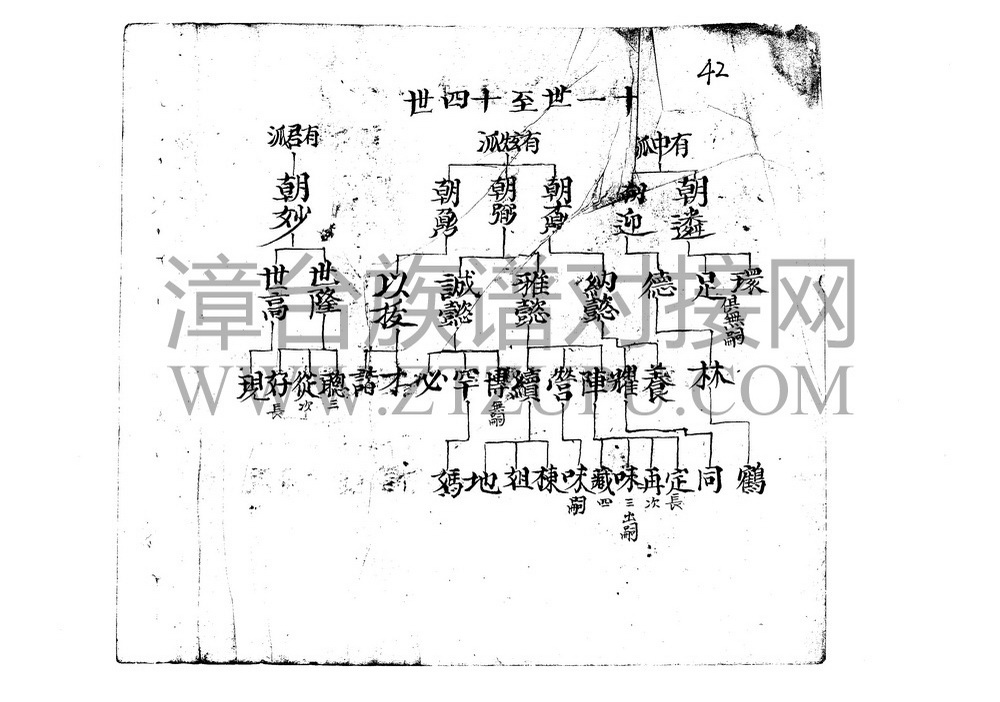 42
十一世至十四世
有中派 有炫派 有君派
朝遴 朝迎 朝勇 朝妙
環 足 俱無嗣 德 納懿 雅懿 誠懿 以拔 世隆 世高
林 養 耀 陣 營 續 博 無嗣 罕 必 才 諧 聰 三 從 次 好 長 現
鶴 同 定 長 再 次 味 三出嗣 藏 四 味 嗣 棟 姐 地 媽
漳台族谱对接网
WWW.ZTZUPU.COM